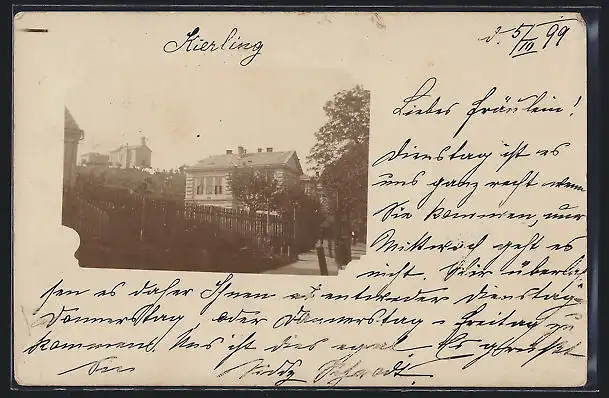 Kierling
d. 5/III 99
Liebes Fräulein!
Dienstag ist es
uns ganz recht wenn
Sie kommen, nur
Mittwoch geht es
nicht. Wir überlas
sen es daher Ihnen entweder Dienstag
Donnerstag, oder Donnerstag - Freitag zu
kommen. Uns ist dies egal. Es grüsst
Sie